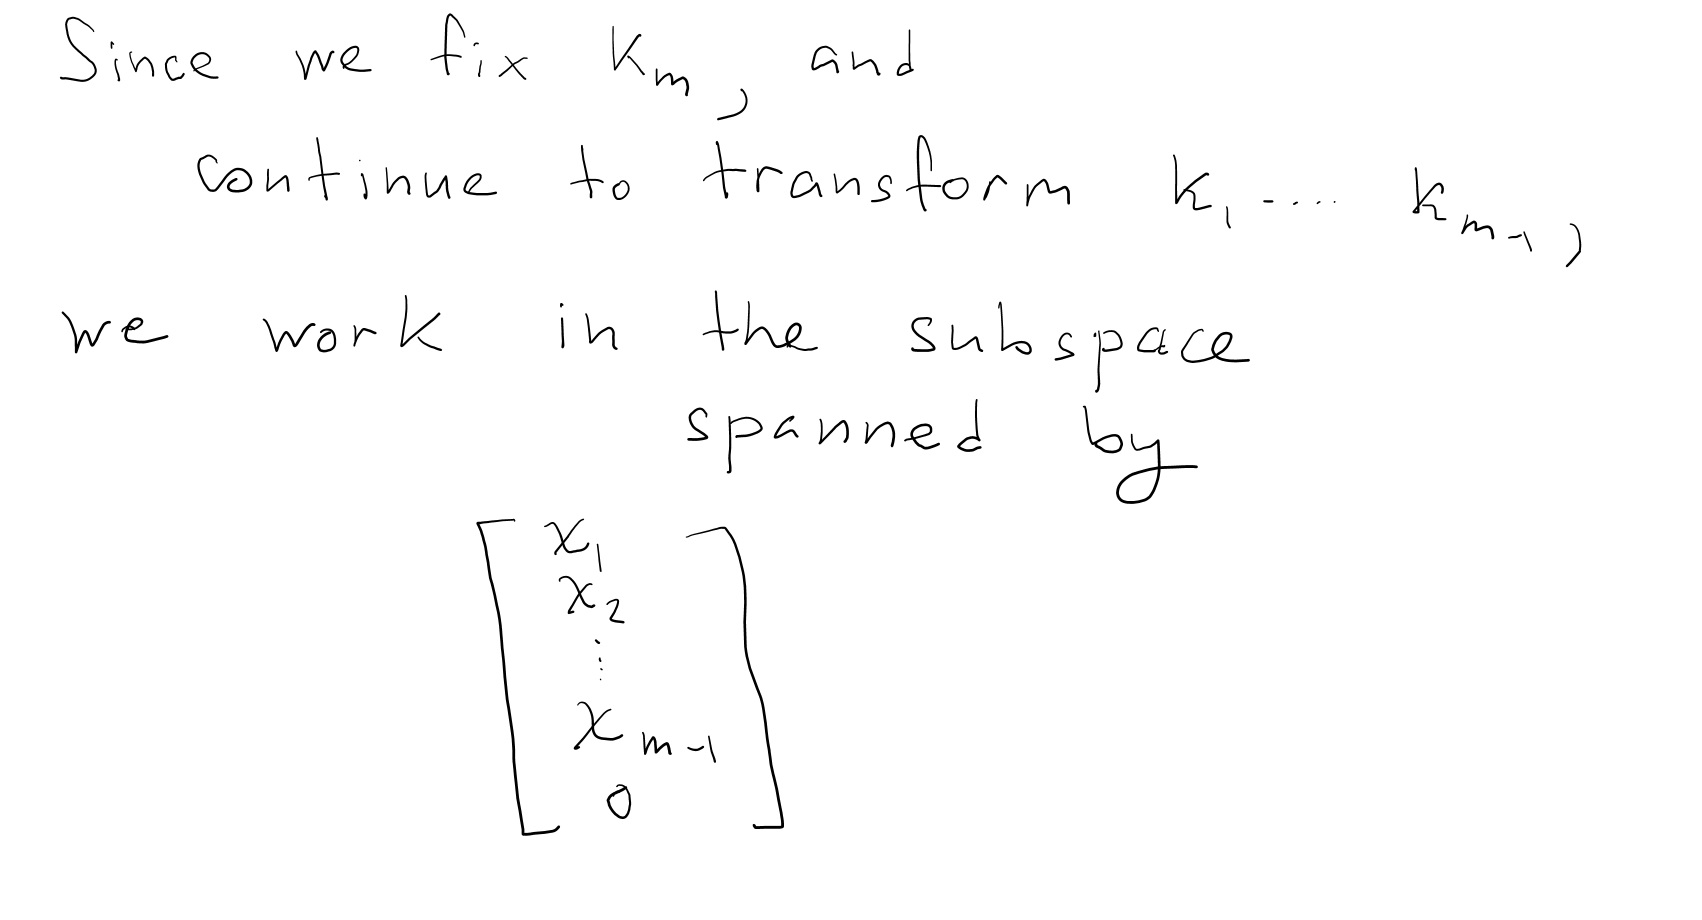 Since we fix Km, and
continue to transform K1 .... Km-1,
we work in the subspace
spanned by
x1
x2
⋮
xm-1
0